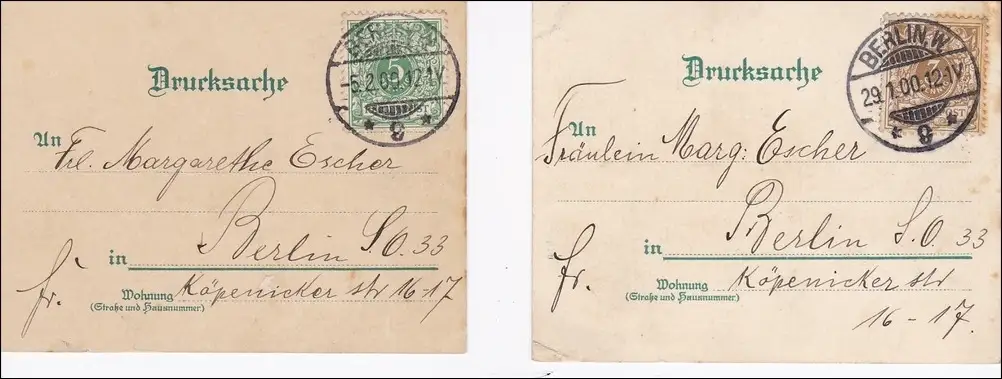 Drucksache
5
5.2.00.12-1V
* 9 *
An
Frl. Margarethe Escher
Berlin S.O. 33
in
fr.
Wohnung
Köpenicker str 16-17
(Straße und Hausnummer)
Drucksache
BERLIN. W.
3
29.1.00.12-1V
* 9 *
An
Fräulein Marg: Escher
Berlin S.O. 33
in
fr.
Wohnung
Köpenicker str
(Straße und Hausnummer.)
16-17.